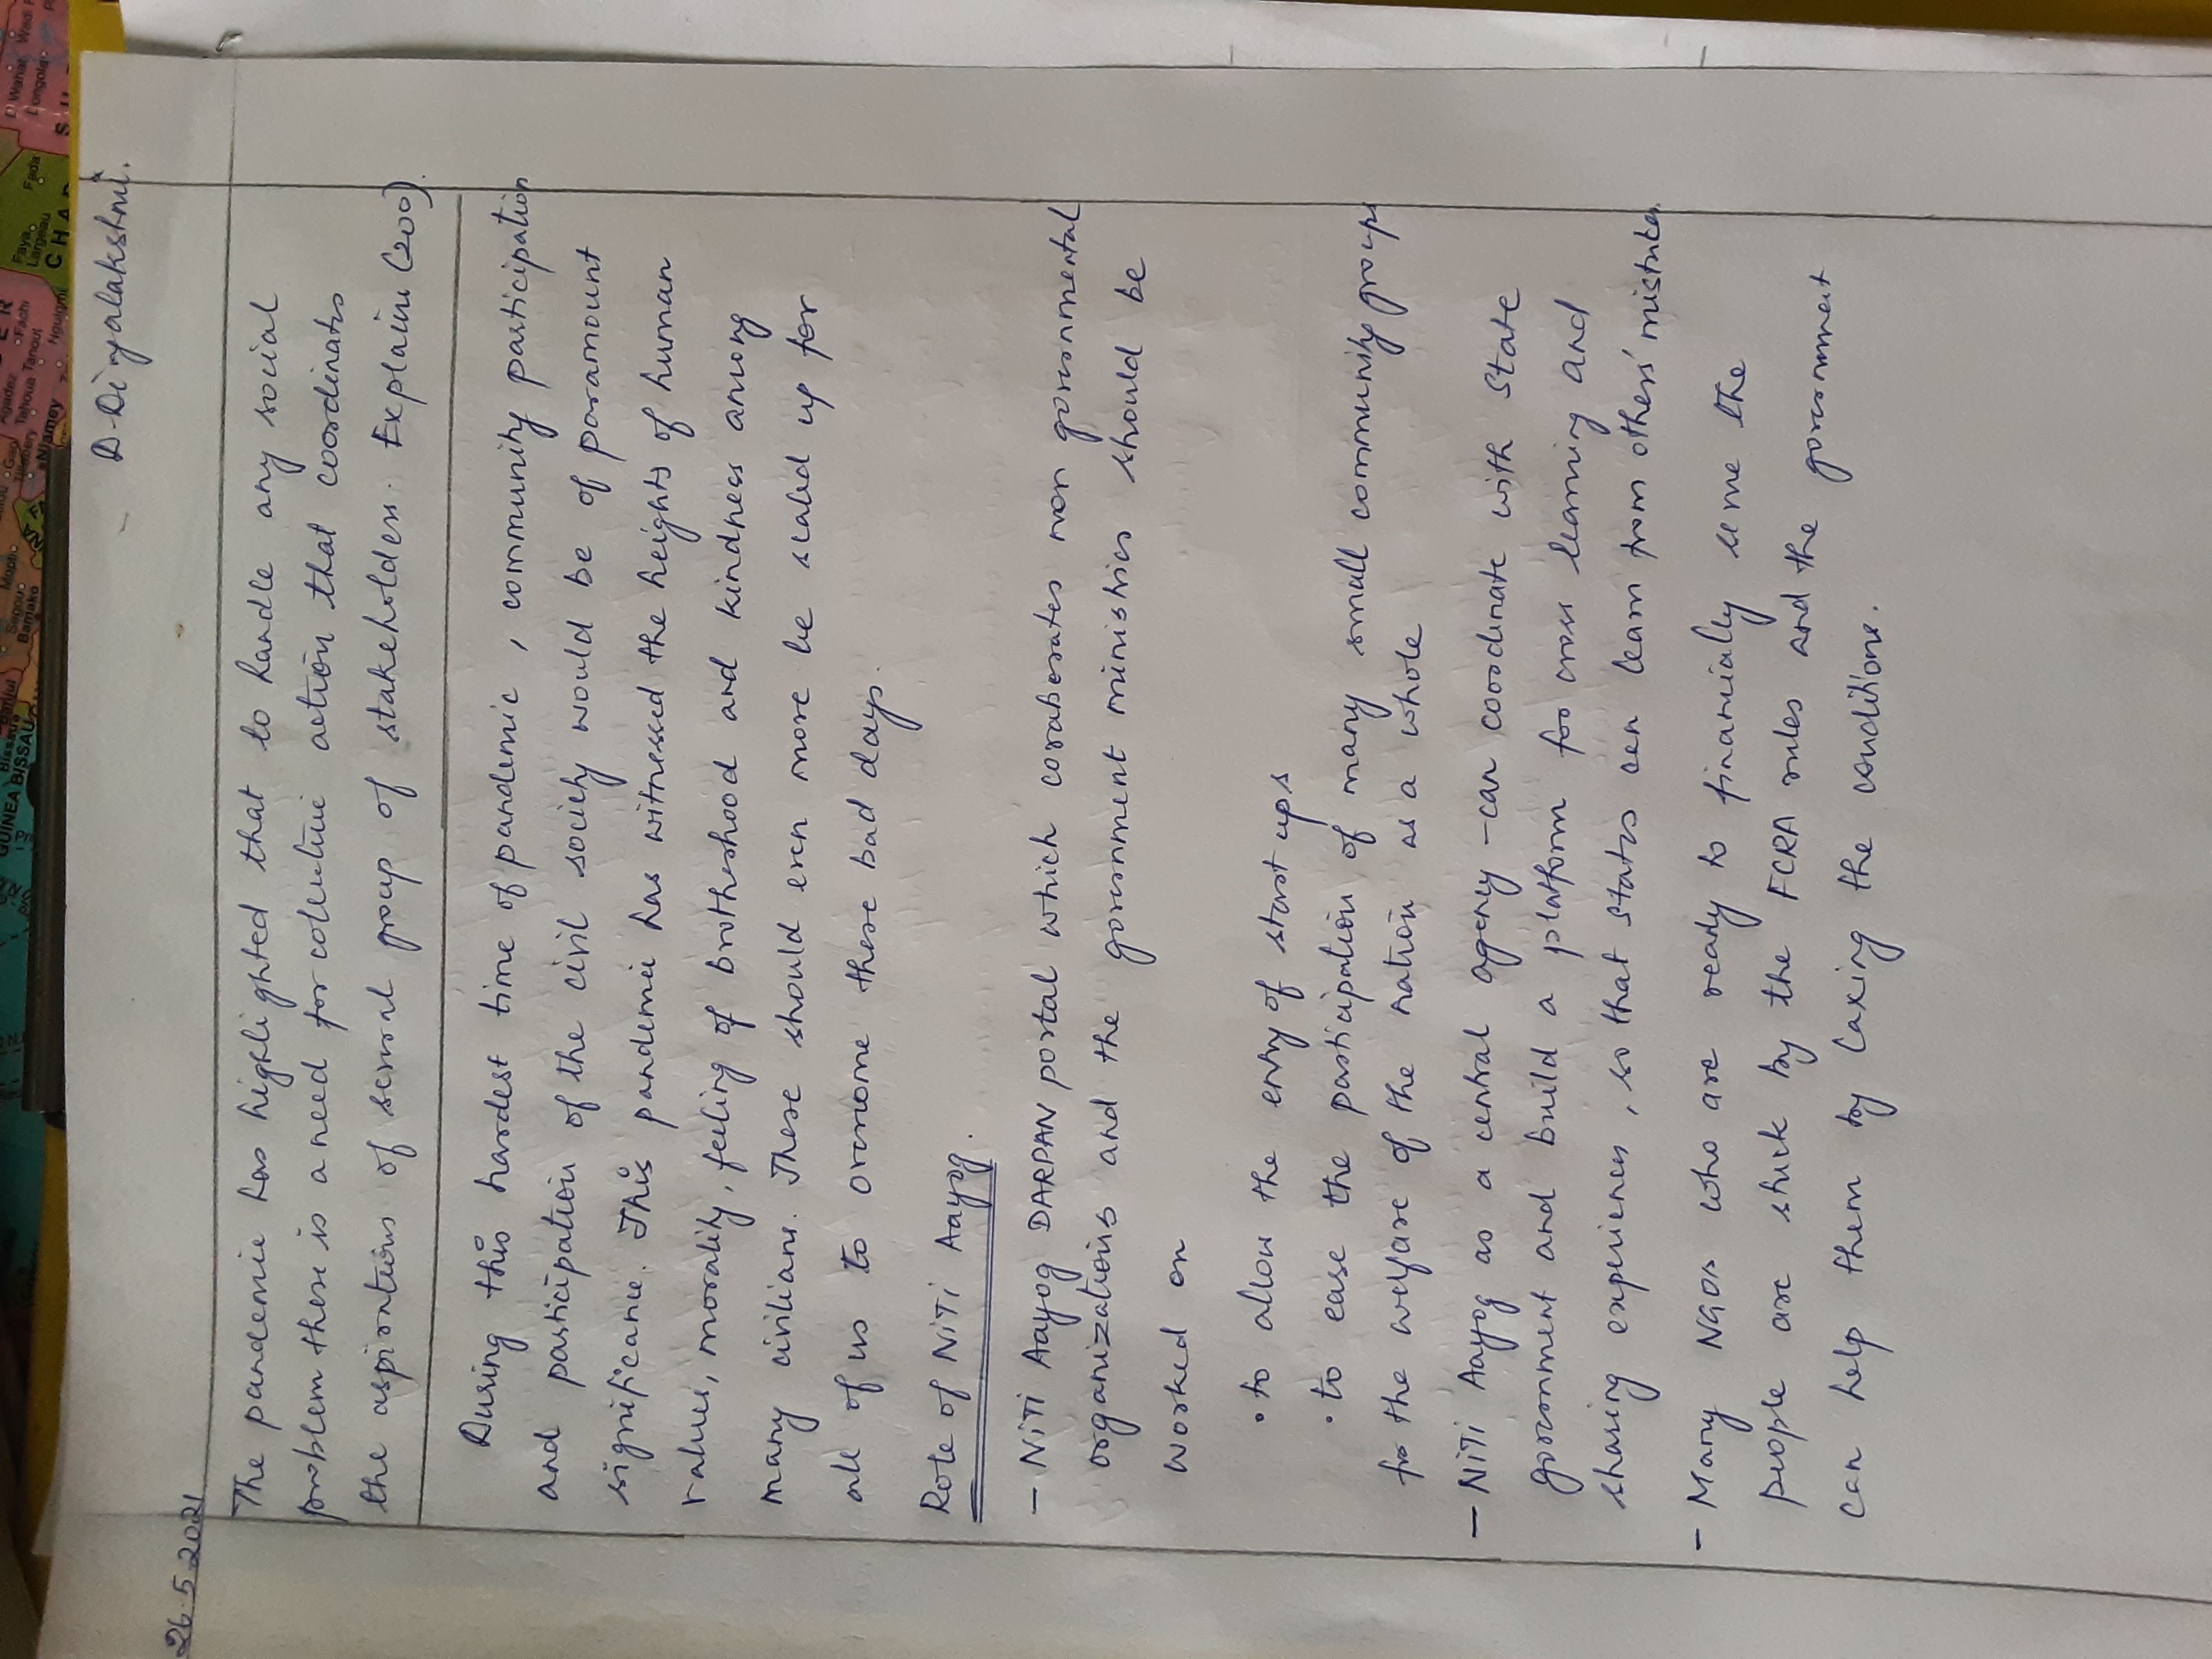 26.5.2021
D. Divyalakshmi.
The pandemic has highlighted that to handle any social
problem there is a need for collective action that coordinates
the aspirations of several group of stakeholders. Explain (200).
During this hardest time of pandemic, community participation
and participation of the civil society would be of paramount
significance. This pandemic has witnessed the heights of human
values, morality, feeling of brotherhood and kindness among
many civilians. These should even more be scaled up for
all of us to overcome these bad days.
Role of NITI Aayog.
- NITI Aayog DARPAN portal which coraborates non governmental
organizations and the government ministries should be
worked on
• to allow the entry of start ups
• to ease the participation of many small community groups
for the welfare of the nation as a whole
- NITI Aayog as a central agency - can coordinate with State
government and build a platform for cross learning and
sharing experiences, so that states can learn from others' mistakes.
- Many NGOs who are ready to financially serve the
people are stuck by the FCRA rules and the government
can help them by laxing the conditions.
CHAD
Faya
Largeau
Fada
Fachi
Nguigmi
Agadez
Tahoua Tanout
Niamey
Bamako
GUINEA BISSAU
Bissau